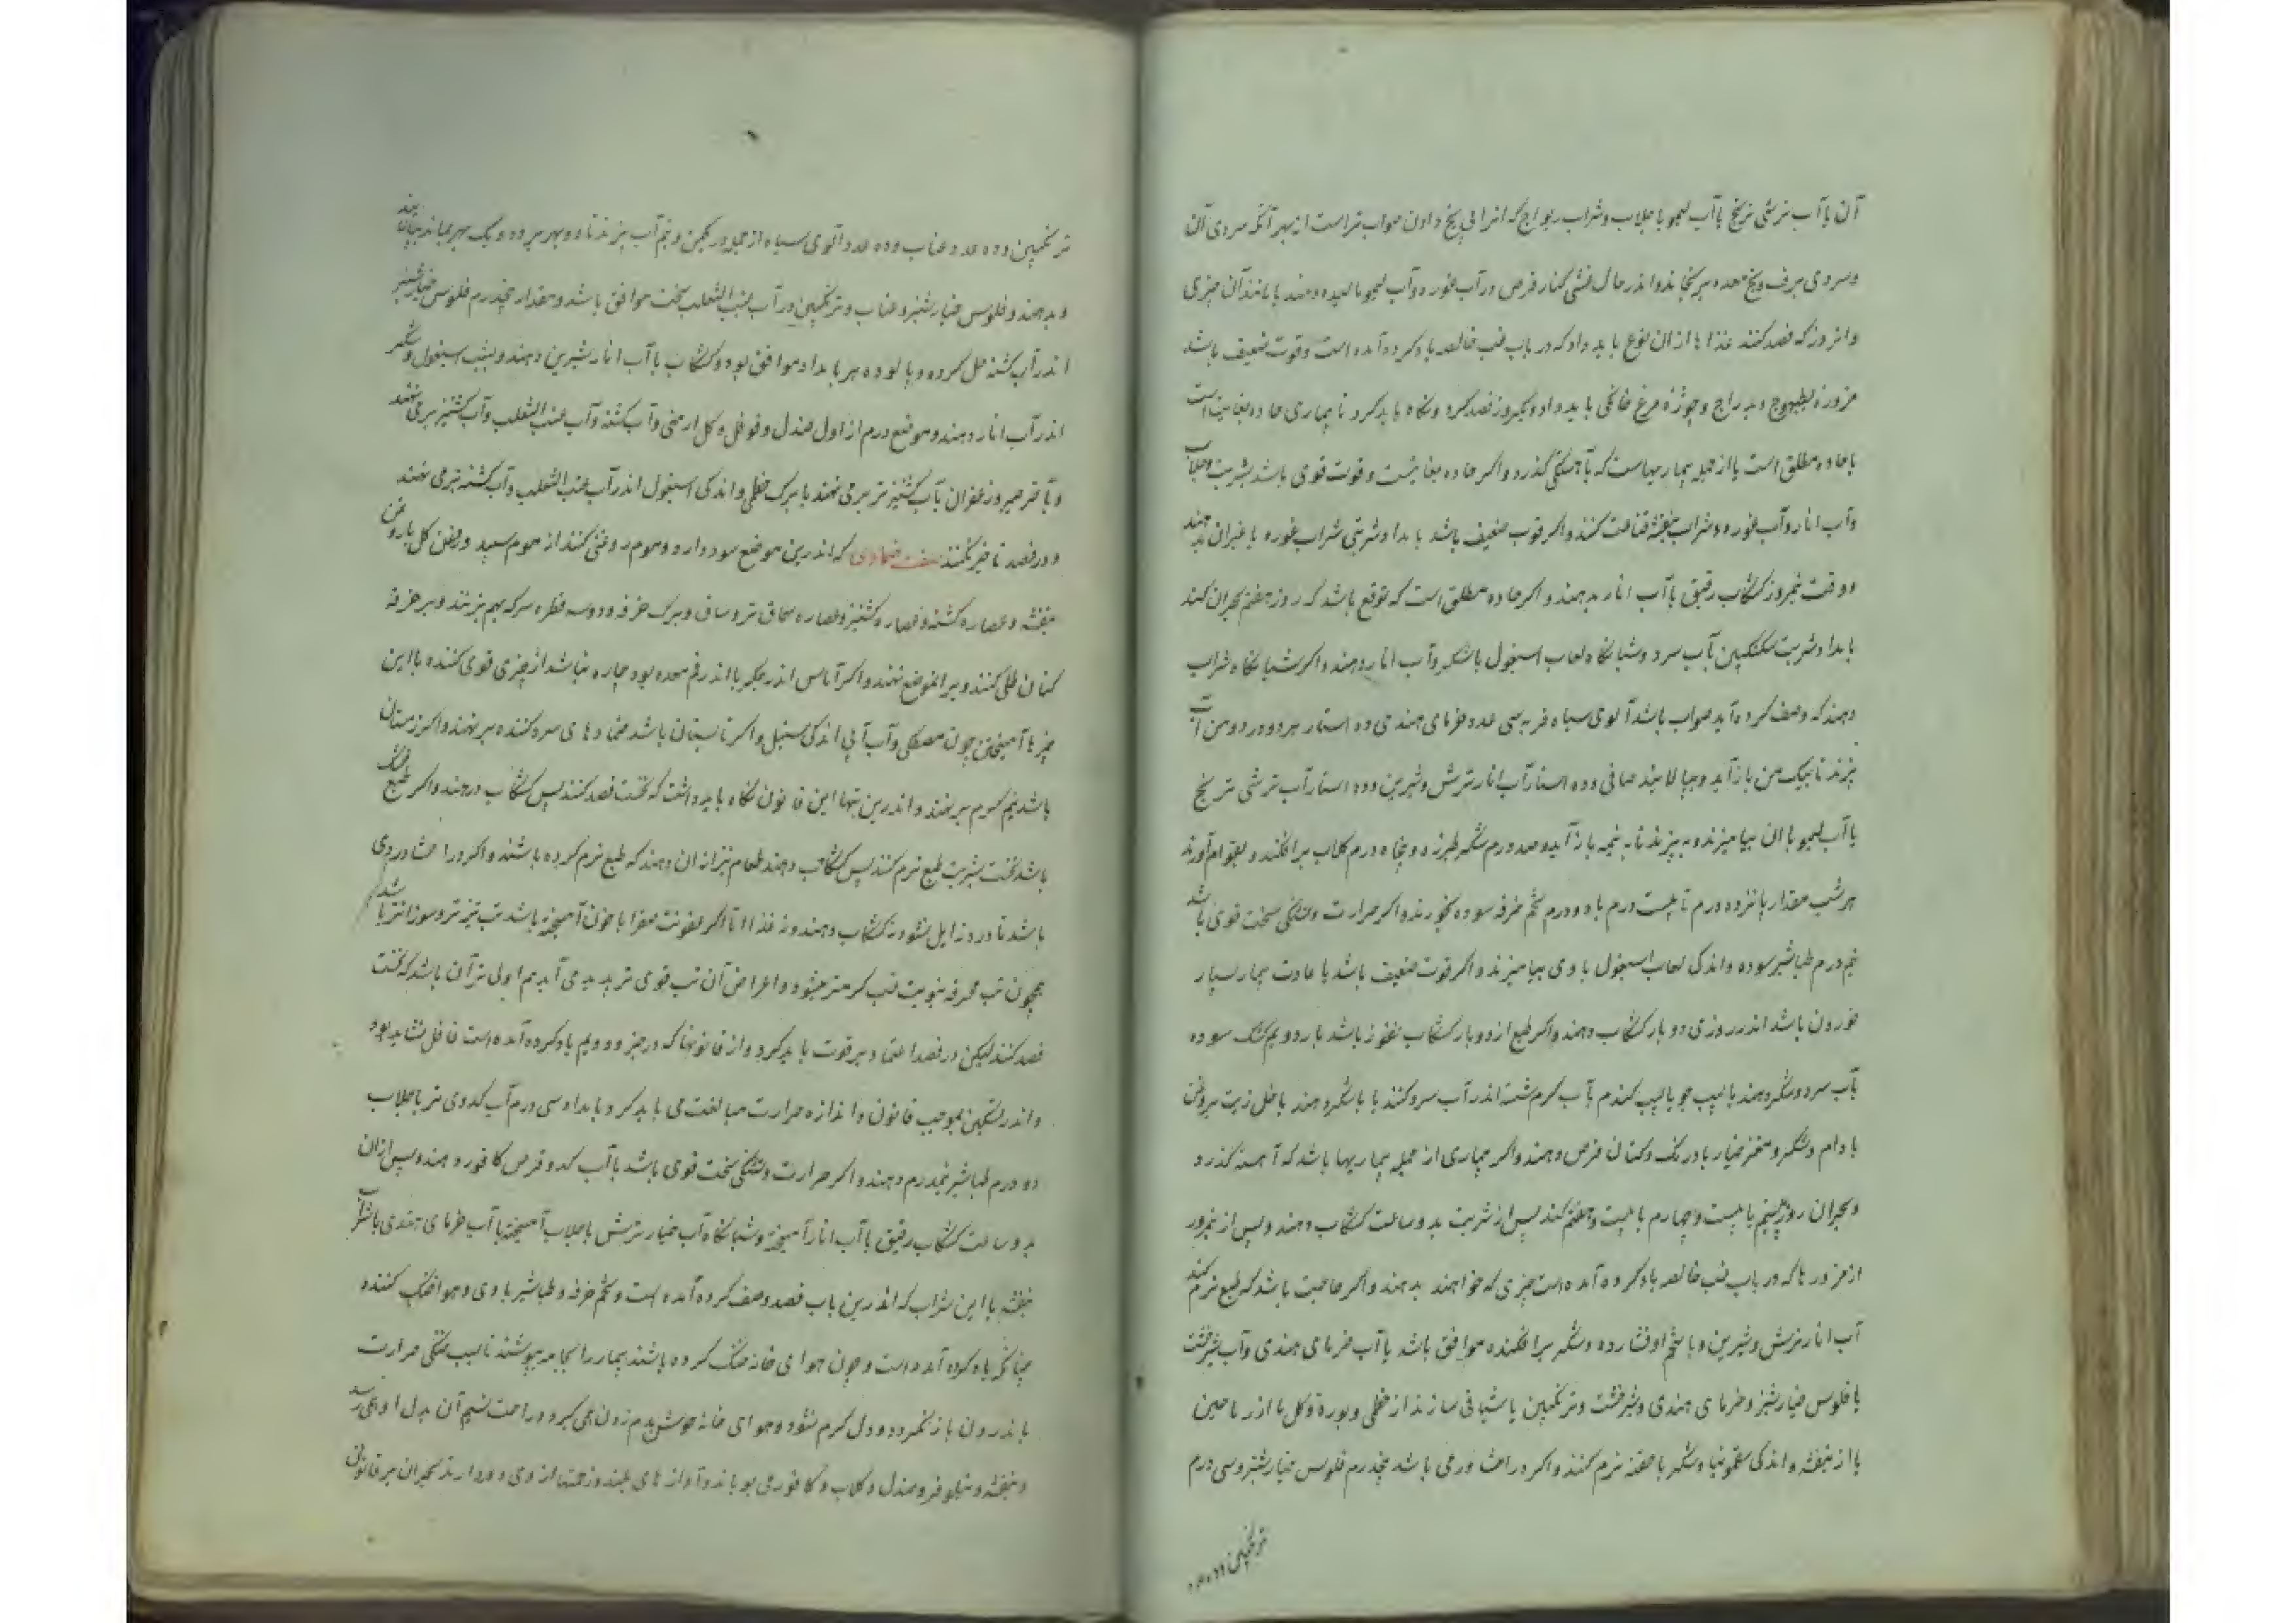 آن با آب ترشی ترنج یا آب لیمو یا جلاب و شراب ریواج که اندر ابی یخ دادن صواب تر است از بهر آنکه سردی آن
و سردی برف و یخ معده برنجاند و اندر حال غشی کنار قرص در آب غوره و آب لیمو مالیده دهند یا مانند آن چیزی
و انروز که فصد کنند غذاها از ان نوع باید داد که در باب غب خالصه یاد کرده آمده است و قوت ضعیف باشد
مزوره بطیهوج و بدراج و جوژهٔ مرغ خانگی باید داد و دیگر روز قصد کرد و نگاه باید کرد تا بیماری حاده بغایت است
یا حاده مطلق است یا از جمله بیماریهاست که بآهستگی گذرد و اگر حاده بغایتست و قوت قوی باشد بشربت جلاب
و آب انار و آب غوره و شراب بنفشه قناعت کنند و اگر قوت ضعیف باشد بامداد شربتی شراب غوره یا غیر ان بدهند
و وقت نیمروز کشکاب رقیق با آب انار بدهند و اگر حاده مطلق است که توقع باشد که روز هفتم بحران کند
بامداد شربت سکنکبین آب سرد و شبانگاه لعاب اسبغول با شکر و آب انار دهند و اگر شبانگاه شراب
دهند که وصف کرده آید صواب باشد آلوی سیاه فربه سی عدد خرمای هندی ده استار هر دو در دو من آب
بپزند تا بیک من باز آید و بپالایند صافی و ده استار آب انار ترش و شیرین و ده استار آب ترشی ترنج
یا آب لیمو با ان بیامیزند و بپزند تا به نیمه باز آید و صد درم شکر طبرزد و پنجاه درم گلاب برافکنند و بقوام آورند
هر شب مقدار پانزده درم تا بیست درم با دو درم تخم خرفه سوده بخورند و اگر حرارت و تشنگی سخت قوی باشد
نیم درم طباشیر سوده و اندکی لعاب اسبغول با وی بیامیزند و اگر قوت ضعیف باشد یا عادت بیمار بسیار
خوردن باشد اندر روزی دو بار کشکاب دهند و اگر طبع از دو بار کشکاب نفور باشد بار دویم کشک سوده
بآب سرد و شکر دهند یا سپب جو یا سپب کندم بآب گرم شسته اندر آب سرد کنند یا با شکر دهند یا خل زیت بروغن
بادام و شکر و مغز خیار بادرنگ و کتان قرص دهند و اگر بیماری از جمله بیماریها باشد که آهسته گذرد
و بحران روز بیستم یا بیست و چهارم یا بیست و هفتم کند پس از شربت بدو ساعت کشکاب دهند و پس از نیمروز
از مزورها که در باب غب خالصه یاد کرده آمده است چیزی که خواهند بدهند و اگر حاجت باشد که طبع نرم کنند
آب انار ترش و شیرین و با شحم او فشارده و شکر برافکنده موافق باشد یا آب خرمای هندی و آب شیرخشت
یا فلوس خیارشنبز و خرمای هندی و شیرخشت و ترنکبین یا شیافی سازند از خطمی و بوره و گل یا اندر یاحین
یا از بنفشه و اندکی سقمونیا و شکر یا حقنه نرم کنند و اگر در احشا ورمی باشد پنجدرم فلوس خیارشنبز و سی درم
ترنکبین و ده عدد
ترنکبین و ده عدد عناب و ده عدد آلوی سیاه از جمله در یکمن و نیم آب بپزند تا دو بهر برود و یک بهر بماند بپالایند
و بدهند و فلوس خیارشنبز و عناب و ترنکبین در آب عنب الثعلب سخت موافق باشد و مقدار پنجدرم فلوس خیارشنبز
اندر آب کشنه حل کرده و پالوده هر بامداد موافق بود و کشکاب با آب انار شیرین دهند و بشب اسبغول و شکر
اندر آب انار دهند و موضع ورم از اول صندل و فوفل و گل ارمنی و آب کشنه و آب عنب الثعلب و آب کشنیز بر می نهند
و بآخر صبر و زعفران بآب کشنیز تر بر می نهند یا برگ خطمی و اندکی اسبغول اندر آب عنب الثعلب و آب کشنه تر می نهند
و در فصد تاخیر نکنند صفت ضمادی که اندرین موضع سود دارد و موم روغنی کنند از موم سپید و روغن گل یا روغن
بنفشه و عصاره کشنه و عصاره کشنیز و عصاره سماق تر و ساق و برگ خرفه و دو سه قطره سرکه بهم بزنند و بر خرقهٔ
کتان طلی کنند و بر انموضع نهند و اگر آماس اندر جگر یا اندر فم معده بود چاره نباشد از چیزی قوی کننده با این
چیزها آمیختن چون مصطکی و آب آبی اندکی سنبل و اگر تابستان باشد ضمادهای سرد کننده بر نهند و اگر زمستان
باشد نیم گرم بر نهند و اندرین تبها این قانون نگاه باید داشت که نخست فصد کنند پس کشکاب دهند و اگر طبع خشک
باشد نخست بشربت طبع نرم کنند پس کشکاب دهند طعام نیز از ان دهند که طبع نرم کرده باشند و اگر در احشا دردی
باشد تا درد زایل نشود نه کشکاب دهند و نه غذا اما اگر عفونت صفرا با خون آمیخته باشد تب تیزتر و سوزانتر باشد
همچون تب محرقه بنوبت غب گرمتر میشود و اعراض آن تب قوی تر پدید می آید هم اولی تر آن باشد که نخست
فصد کنند لیکن در فصد اعتماد بر قوت باید کرد و از قانونها که در جزو دویم یاد کرده آمده است غافل نشاید بود
و اندر تسکین بموجب قانون و اندازه حرارت مبالغت می باید کرد و بامداد سی درم آب کدوی تر با جلاب
دو درم طباشیر نیمدرم دهند و اگر حرارت و تشنگی سخت قوی باشد با آب کدو قرص کافور دهند و پس از ان
بدو ساعت کشکاب رقیق با آب انار آمیخته و شبانگاه آب خیار ترش با جلاب آمیخته یا آب خرمای هندی با شراب
بنفشه یا این شراب که اندرین باب قصد وصف کرده آمده است و تخم خرفه و طباشیر با وی و هوا خنک کننده
چنانکه یاد کرده آمده است و چون هوای خانه خنک کرده باشند بیمار را بجامه بپوشند تا سبب خنکی حرارت
باندرون باز نگردد و دل گرم نشود و هوای خانه خوش بدم زدن می گیرد و راحت نسیم آن بدل او می رسد
و بنفشه و نیلوفر و صندل و گلاب و کافور می بویاند و آوازهای بلند و زحمتها از وی دور دارند بحران بر قانونی